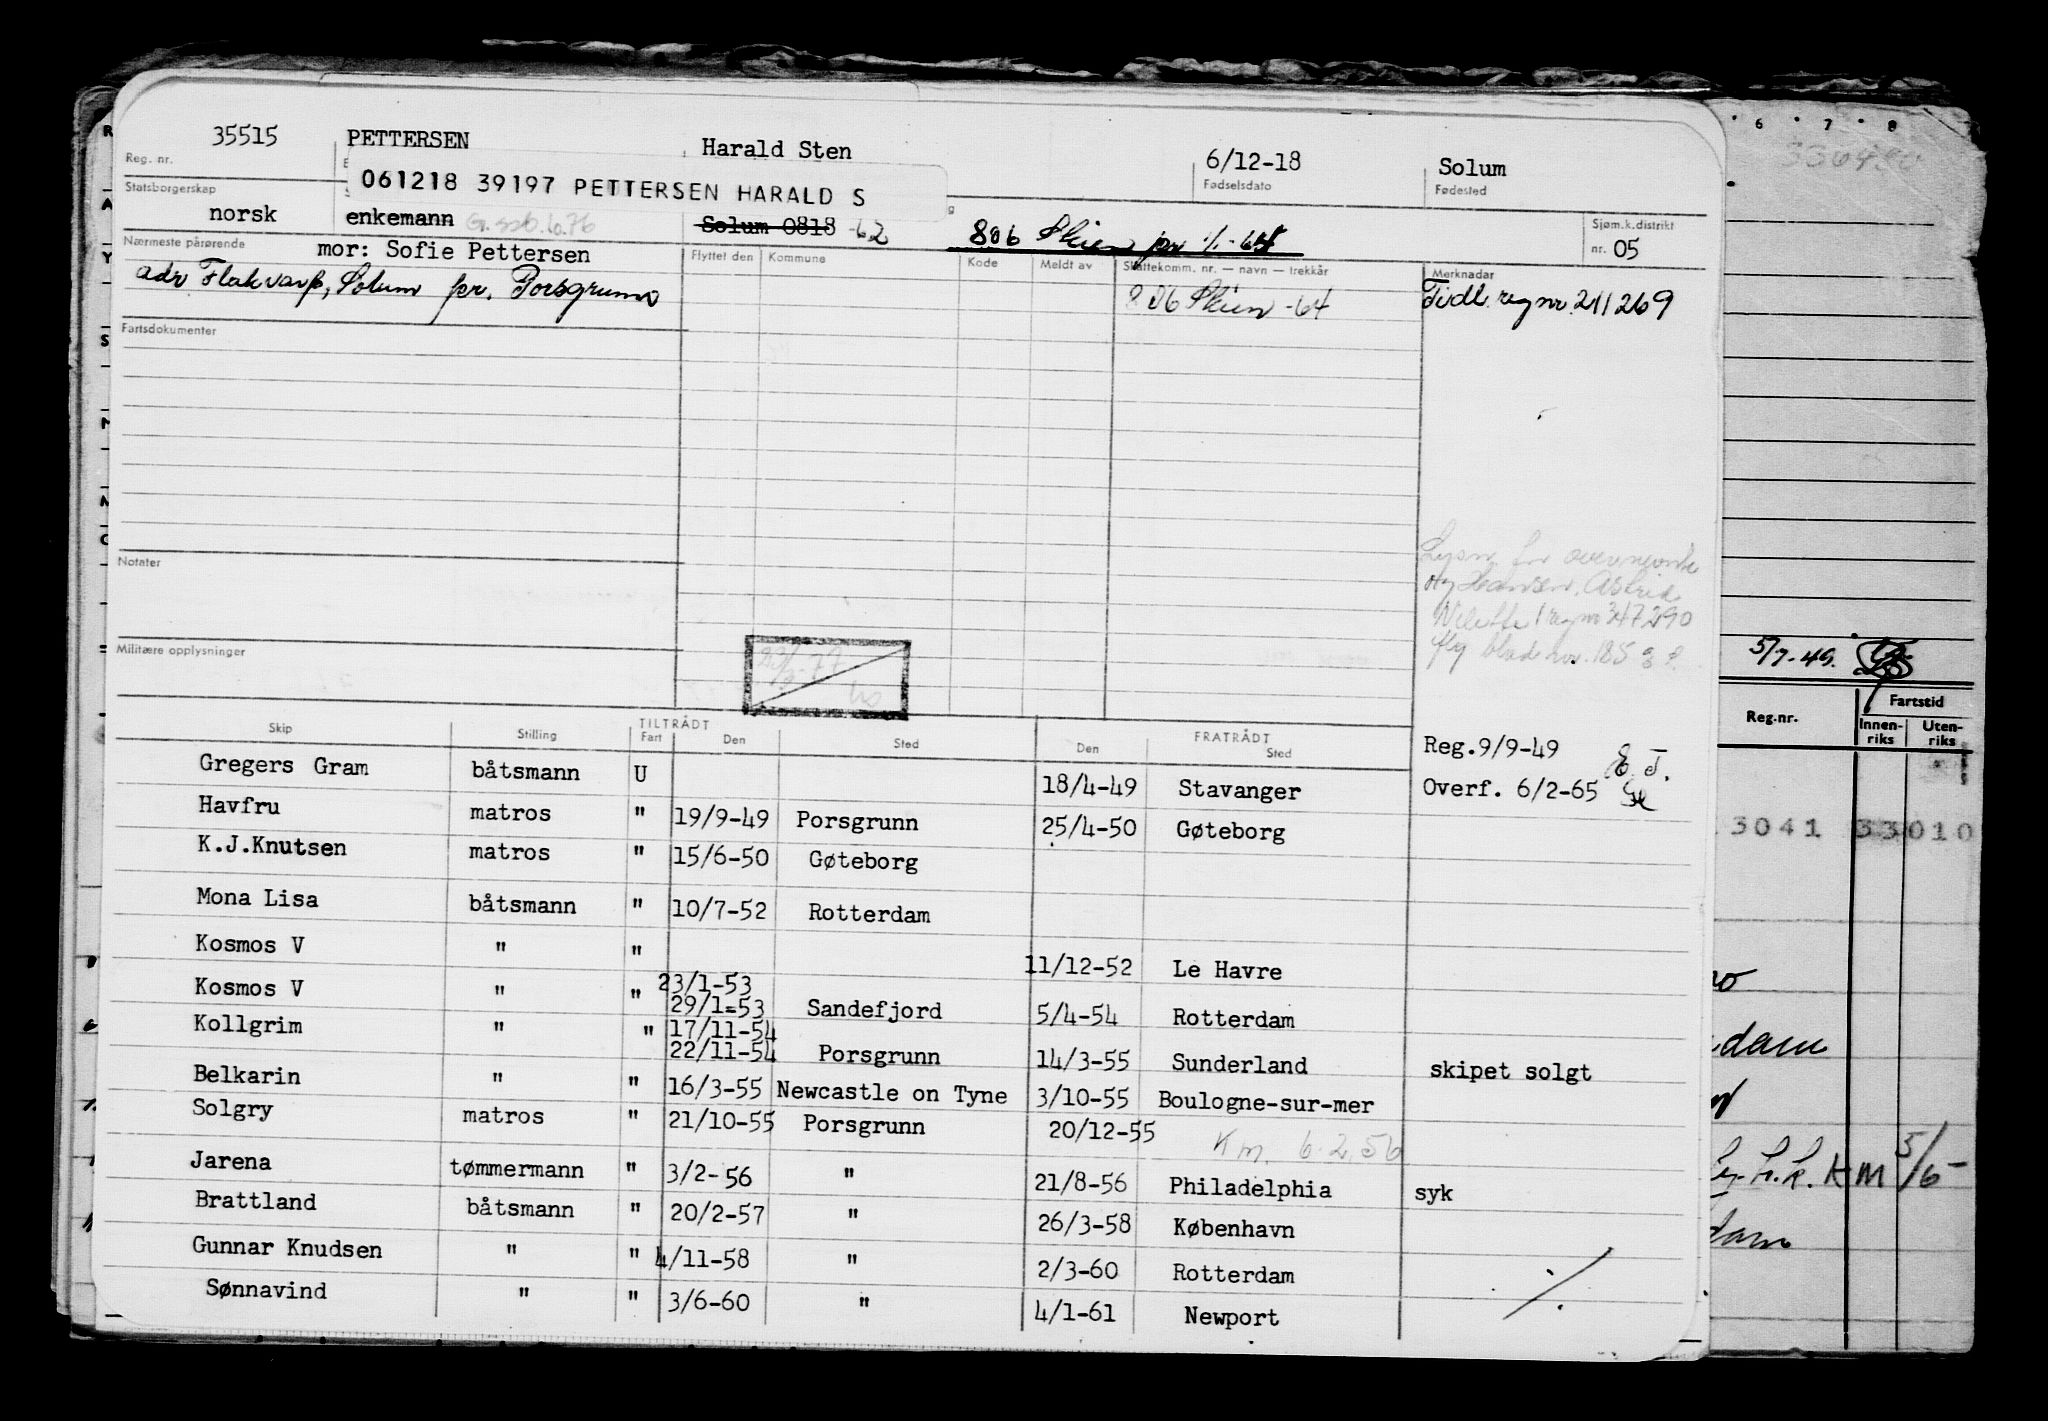 35515 PETTERSEN Harald Sten 6/12-18 Solum
Reg. nr. Fødselsdato Fødested
061218 39197 PETTERSEN HARALD S
Statsborgerskap
norsk enkemann G.ssb.10.76 Solum 0818 -62 806 Skien pr 1/1-64
Sjøm.k.distrikt
nr. 05
Nærmeste pårørende mor: Sofie Pettersen
adr Flakvarp, Solum pr. Porsgrunn
Flyttet den Kommune Kode Meldt av Skattekomm. nr. — navn — trekkår Merknader
806 Skien -64 Tidl. reg nr. 211269
Fartsdokumenter
Notater
Lysn for
Hansen, Astrid
reg nr 347290
blad nr. 185
Militære opplysninger
23/3-77
Skip Stilling TILTRÅDT Fart Den Sted FRATRÅDT Den Sted
Reg. 9/9-49 E. T.
Overf. 6/2-65
Gregers Gram båtsmann U 18/4-49 Stavanger
Havfru matros " 19/9-49 Porsgrunn 25/4-50 Gøteborg
K.J.Knutsen matros " 15/6-50 Gøteborg
Mona Lisa båtsmann " 10/7-52 Rotterdam
Kosmos V " " 11/12-52 Le Havre
23/1-53
Kosmos V " " 29/1-53 Sandefjord 5/4-54 Rotterdam
Kollgrim " " 17/11-54
22/11-54 Porsgrunn 14/3-55 Sunderland skipet solgt
Belkarin " " 16/3-55 Newcastle on Tyne 3/10-55 Boulogne-sur-mer
Solgry matros " 21/10-55 Porsgrunn 20/12-55
Km. 6.2.56
Jarena tømmermann " 3/2-56 " 21/8-56 Philadelphia syk
Brattland båtsmann " 20/2-57 " 26/3-58 København
Gunnar Knudsen " " 4/11-58 " 2/3-60 Rotterdam
Sønnavind " " 3/6-60 " 4/1-61 Newport
6 7 8
5/7-49.
Reg.nr. Fartstid
Innen-
riks
Uten-
riks
3041 33010
dam
KM 5/6-
dam